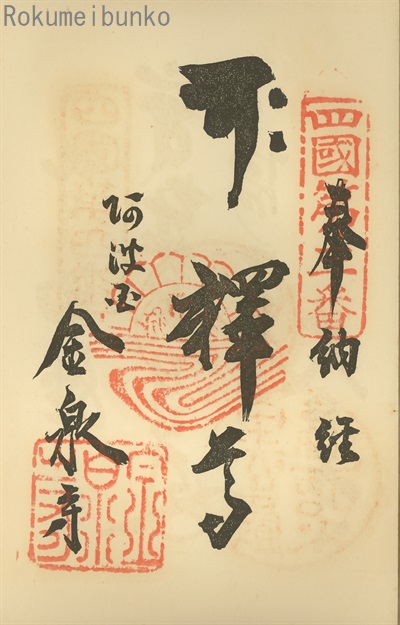 Rokumeibunko
四國第三番
奉納経
釋尊
阿波国
金泉寺